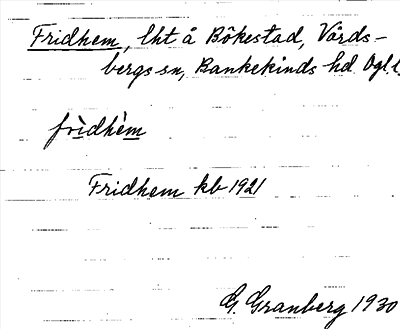 Fridhem, lht å Bökestad, Vårds-
bergs sn, Bankekinds hd Ögl.
frìdhèm
Fridhem kb 1921
G. Granberg 1930